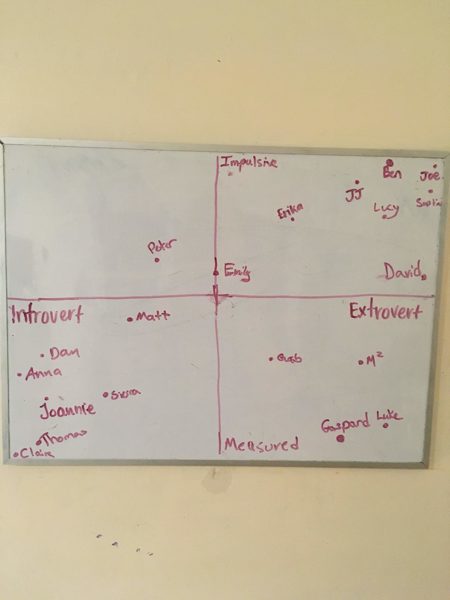 Impulsive
Ben
Joe
JJ
Erika
Lucy
Peter
Emily
David
Introvert
Extrovert
Matt
Dan
Anna
M²
Sierra
Joannie
Gaspard
Luke
Thomas
Measured
Claire